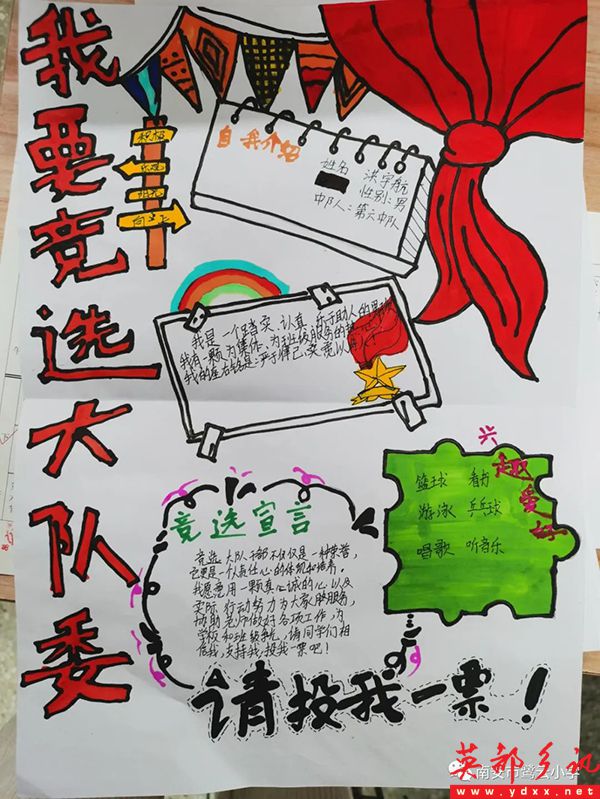 我要竞选大队委
积极
乐观
阳光
向上
自我介绍
姓名 洪宇航
性别:男
中队人:第六中队
我是一个踏实、认真、乐于助人的男孩,
我有一颗为集体、为班级服务的热忱
我的座右铭是:严于律己,宽以待人!
兴趣爱好
篮球 看书
游泳 乒乓球
唱歌 听音乐
竞选宣言
竞选大队干部不仅仅是一种荣誉,
它更是个人责任心的体现和培养。
我愿意用一颗真心诚的心以及
实际行动努力为大家服务,
协助老师做好各项工作,为
学校和班级争光,请同学们相
信我,支持我,投我一票吧!
请投我一票!
南安市鹭云小学
英都乡讯
www.ydxx.net